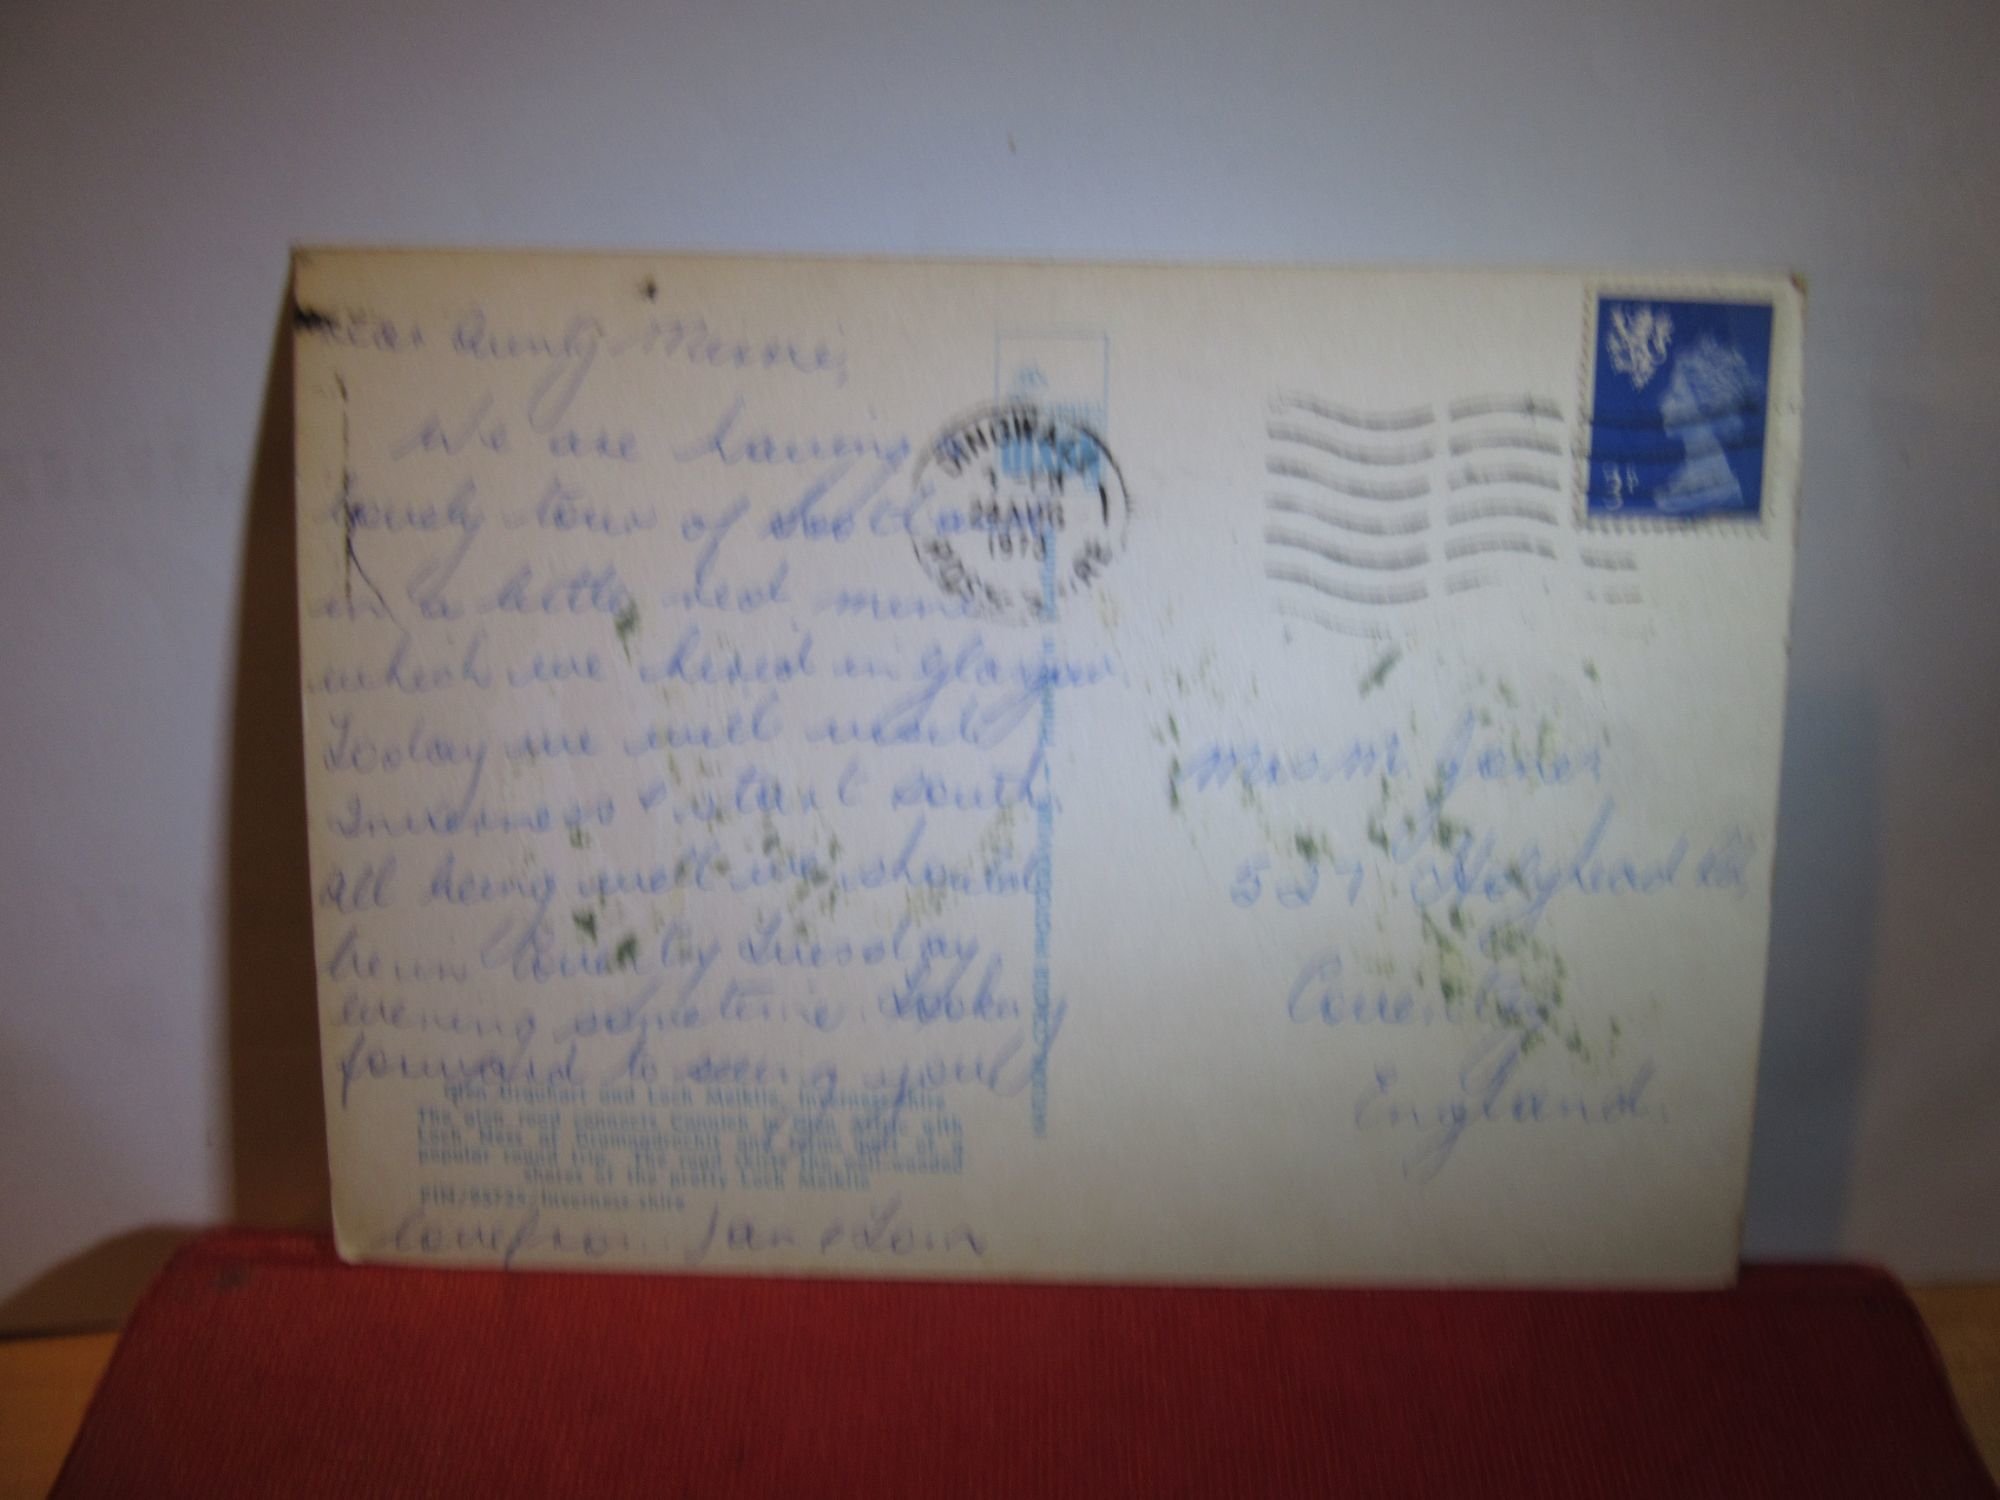 Dear Aunty Minnie,
We are having
lovely tour of Scotland
in a little red mini
which we hired in Glasgow.
Today we will reach
Inverness & start south.
All being well we should
be in Coventry Tuesday
evening sometime. Looking
forward to seeing you
Glen Urquhart and Loch Meiklie, Inverness-shire
The glen road connects Cannich in Glen Affric with
Loch Ness at Drumnadrochit and forms part of a
popular round trip. The road skirts the well-wooded
shores of the pretty Loch Meiklie
PIN/95725, Inverness-shire
love from Jan &
1 PM
24 AUG
1973
3P
Mrs M. Jones
527 Holyhead Rd,
Coventry
England.